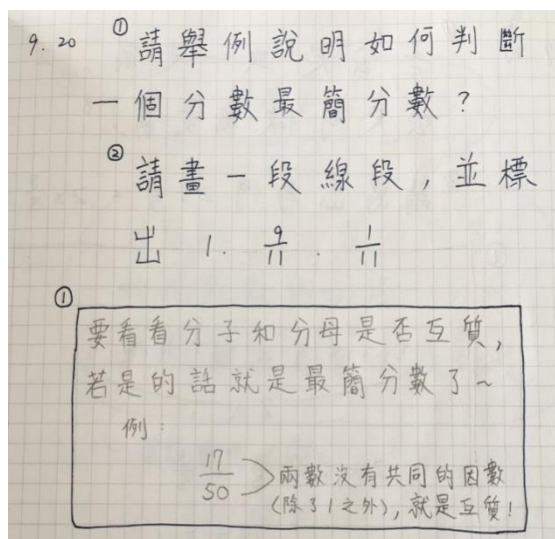 9.20 ①請舉例說明如何判斷
一個分數最簡分數？
②請畫一段線段，並標
出 1. 9/11 . 1/11
①
要看看分子和分母是否互質，
若是的話就是最簡分數了~
例：
17/50 兩數沒有共同的因數
(除了1之外)，就是互質！